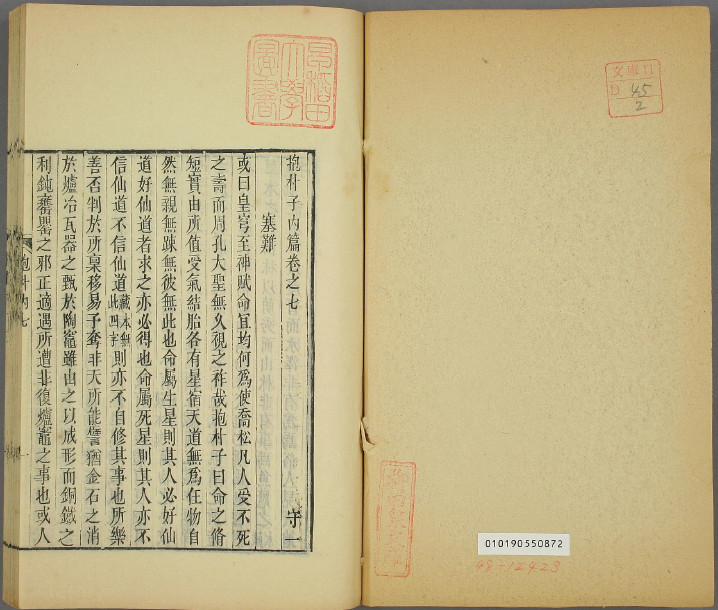 抱朴子內篇卷之七
守一
塞難
或曰皇穹至神賦命宜均何爲使喬松凡人受不死
之壽而周孔大聖無久視之祚哉抱朴子曰命之脩
短實由所值受氣結胎各有星宿天道無爲任物自
然無親無疎無彼無此也命屬生星則其人必好仙
道好仙道者求之亦必得也命屬死星則其人亦不
信仙道不信仙道藏本無此四字則亦不自修其事也所樂
善否判於所稟移易予奪非天所能譬猶金石之消
於爐冶瓦器之甄於陶竈雖由之以成形而銅鐵之
利鈍罋罌之邪正適遇所遭非復爐竈之事也或人
抱朴內七
早稻田大學圖書
文庫11
D 45
2
010190550872
48-12423